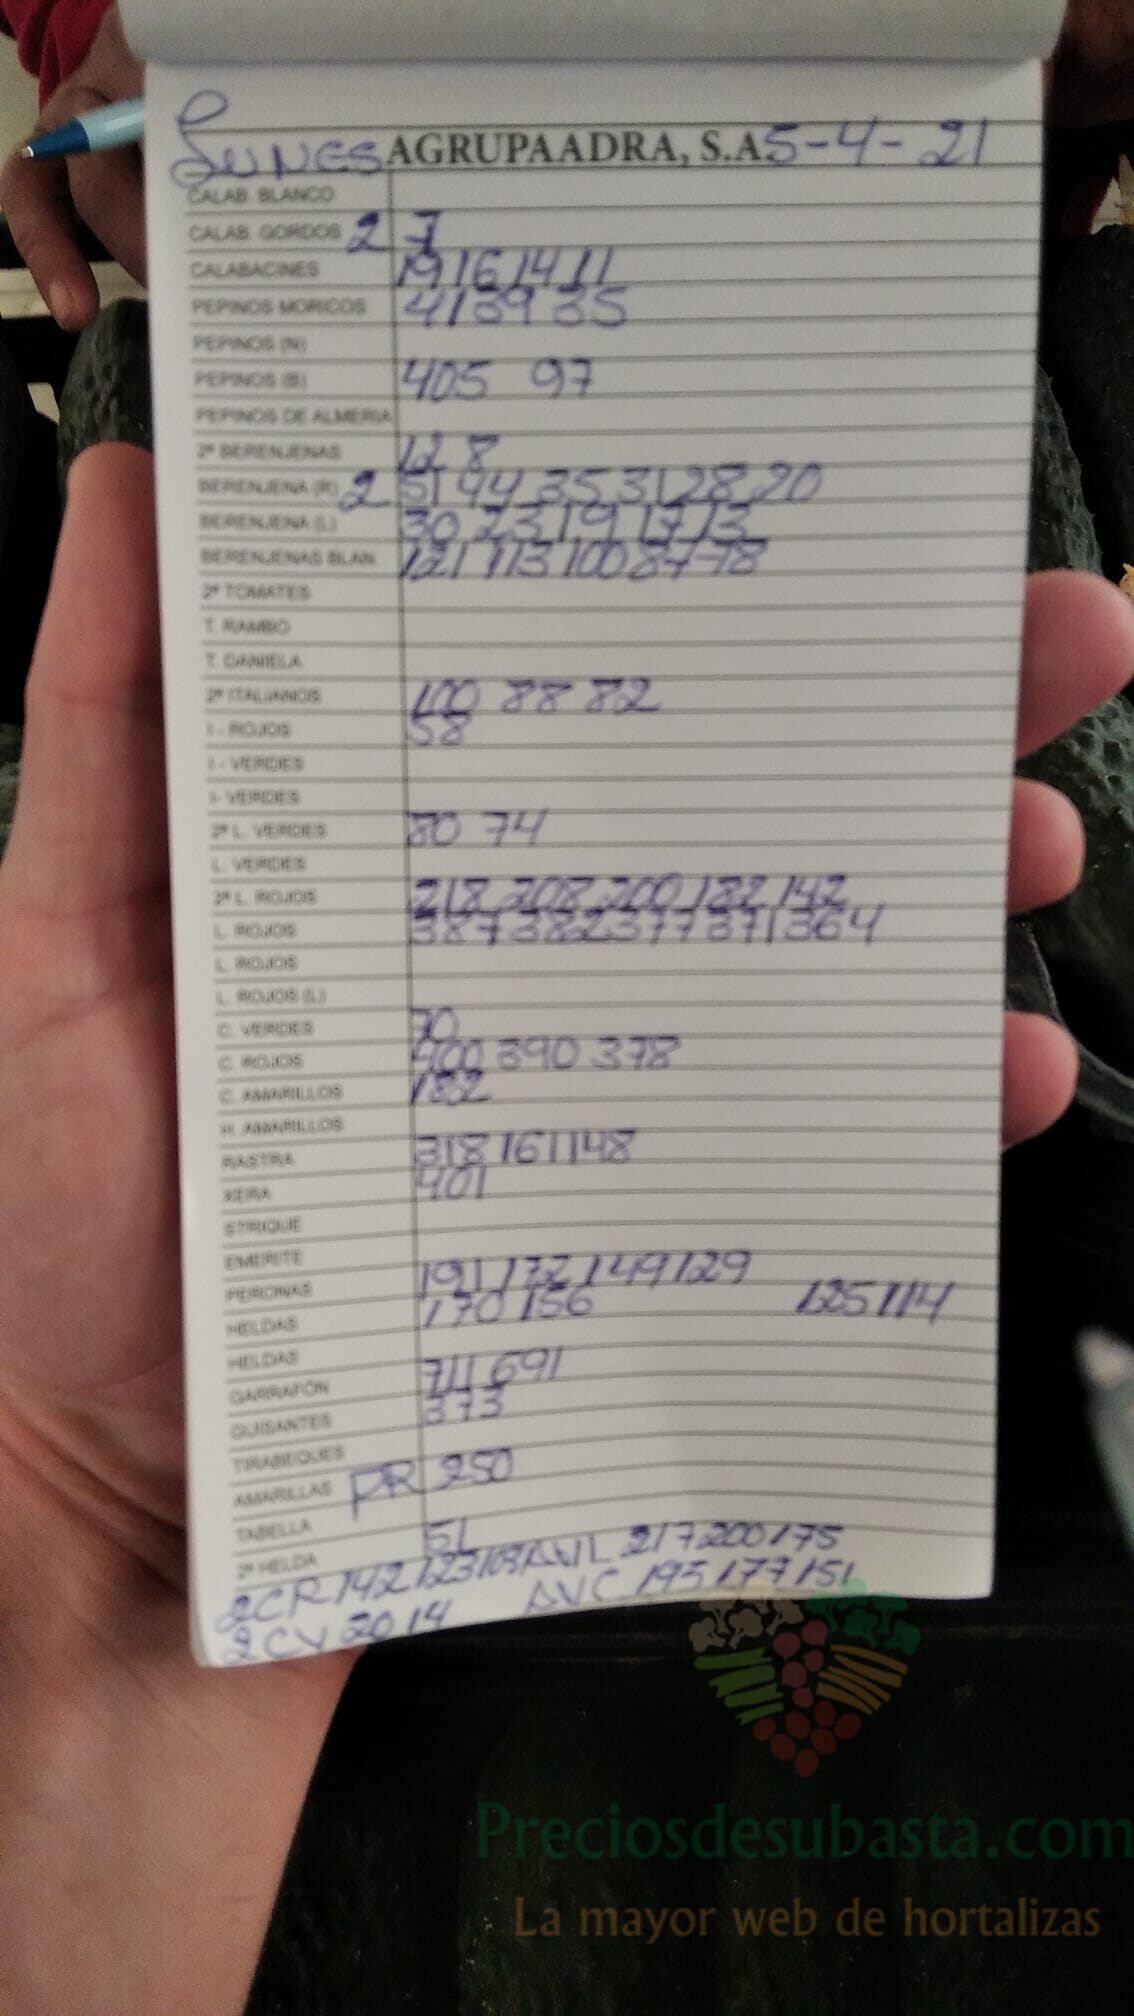 Lunes AGRUPAADRA, S.A 5-4-21
CALAB. BLANCO
CALAB. GORDOS 2 7
CALABACINES 19 16 14 11
PEPINOS MORICOS 41 39 35
PEPINOS (N)
PEPINOS (B) 405 97
PEPINOS DE ALMERIA
2ª BERENJENAS 12 8
BERENJENA (R) 2 51 44 35 31 28 20
BERENJENA (L) 30 23 19 17 13
BERENJENAS BLAN. 121 113 100 87 78
2ª TOMATES
T. RAMBO
T. DANIELA
2ª ITALIANOS 100 88 82
I - ROJOS 58
I - VERDES
I- VERDES
2ª L. VERDES 80 74
L. VERDES
2ª L. ROJOS 218 208 200 182 142
L. ROJOS 387 382 377 371 364
L. ROJOS
L. ROJOS (L)
C. VERDES 70
C. ROJOS 400 390 378
C. AMARILLOS 182
H. AMARILLOS
RASTRA 318 161 148
XERA 401
STRIQUE
EMERITE
PERONAS 191 172 149 129
HELDAS 170 156 125 114
HELDAS
GARRAFÓN 711 691
GUISANTES 373
TIRABEQUES
AMARILLAS PR 250
TABELLA
2ª HELDA 51
2CR 142 123 103 AVL 217 200 175
2CV 20 14 AVC 195 177 151
Preciosdesubasta.com
La mayor web de hortalizas